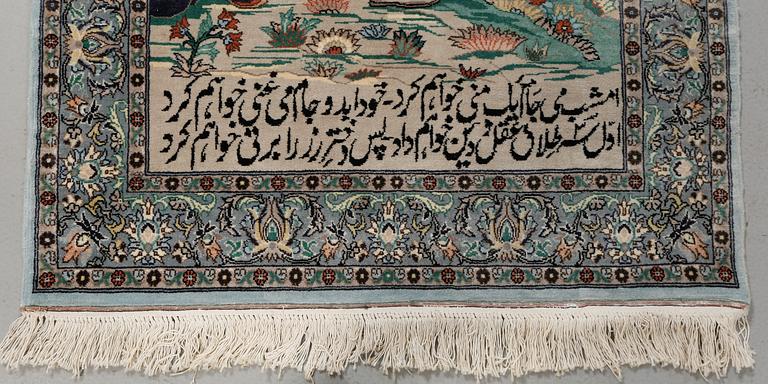 امشب می جام یک منی خواهم کرد - خود را بدو جام می غنی خواهم کرد
اول سه طلاق عقل و دین خواهم داد پس دختر رز را بزنی خواهم کرد